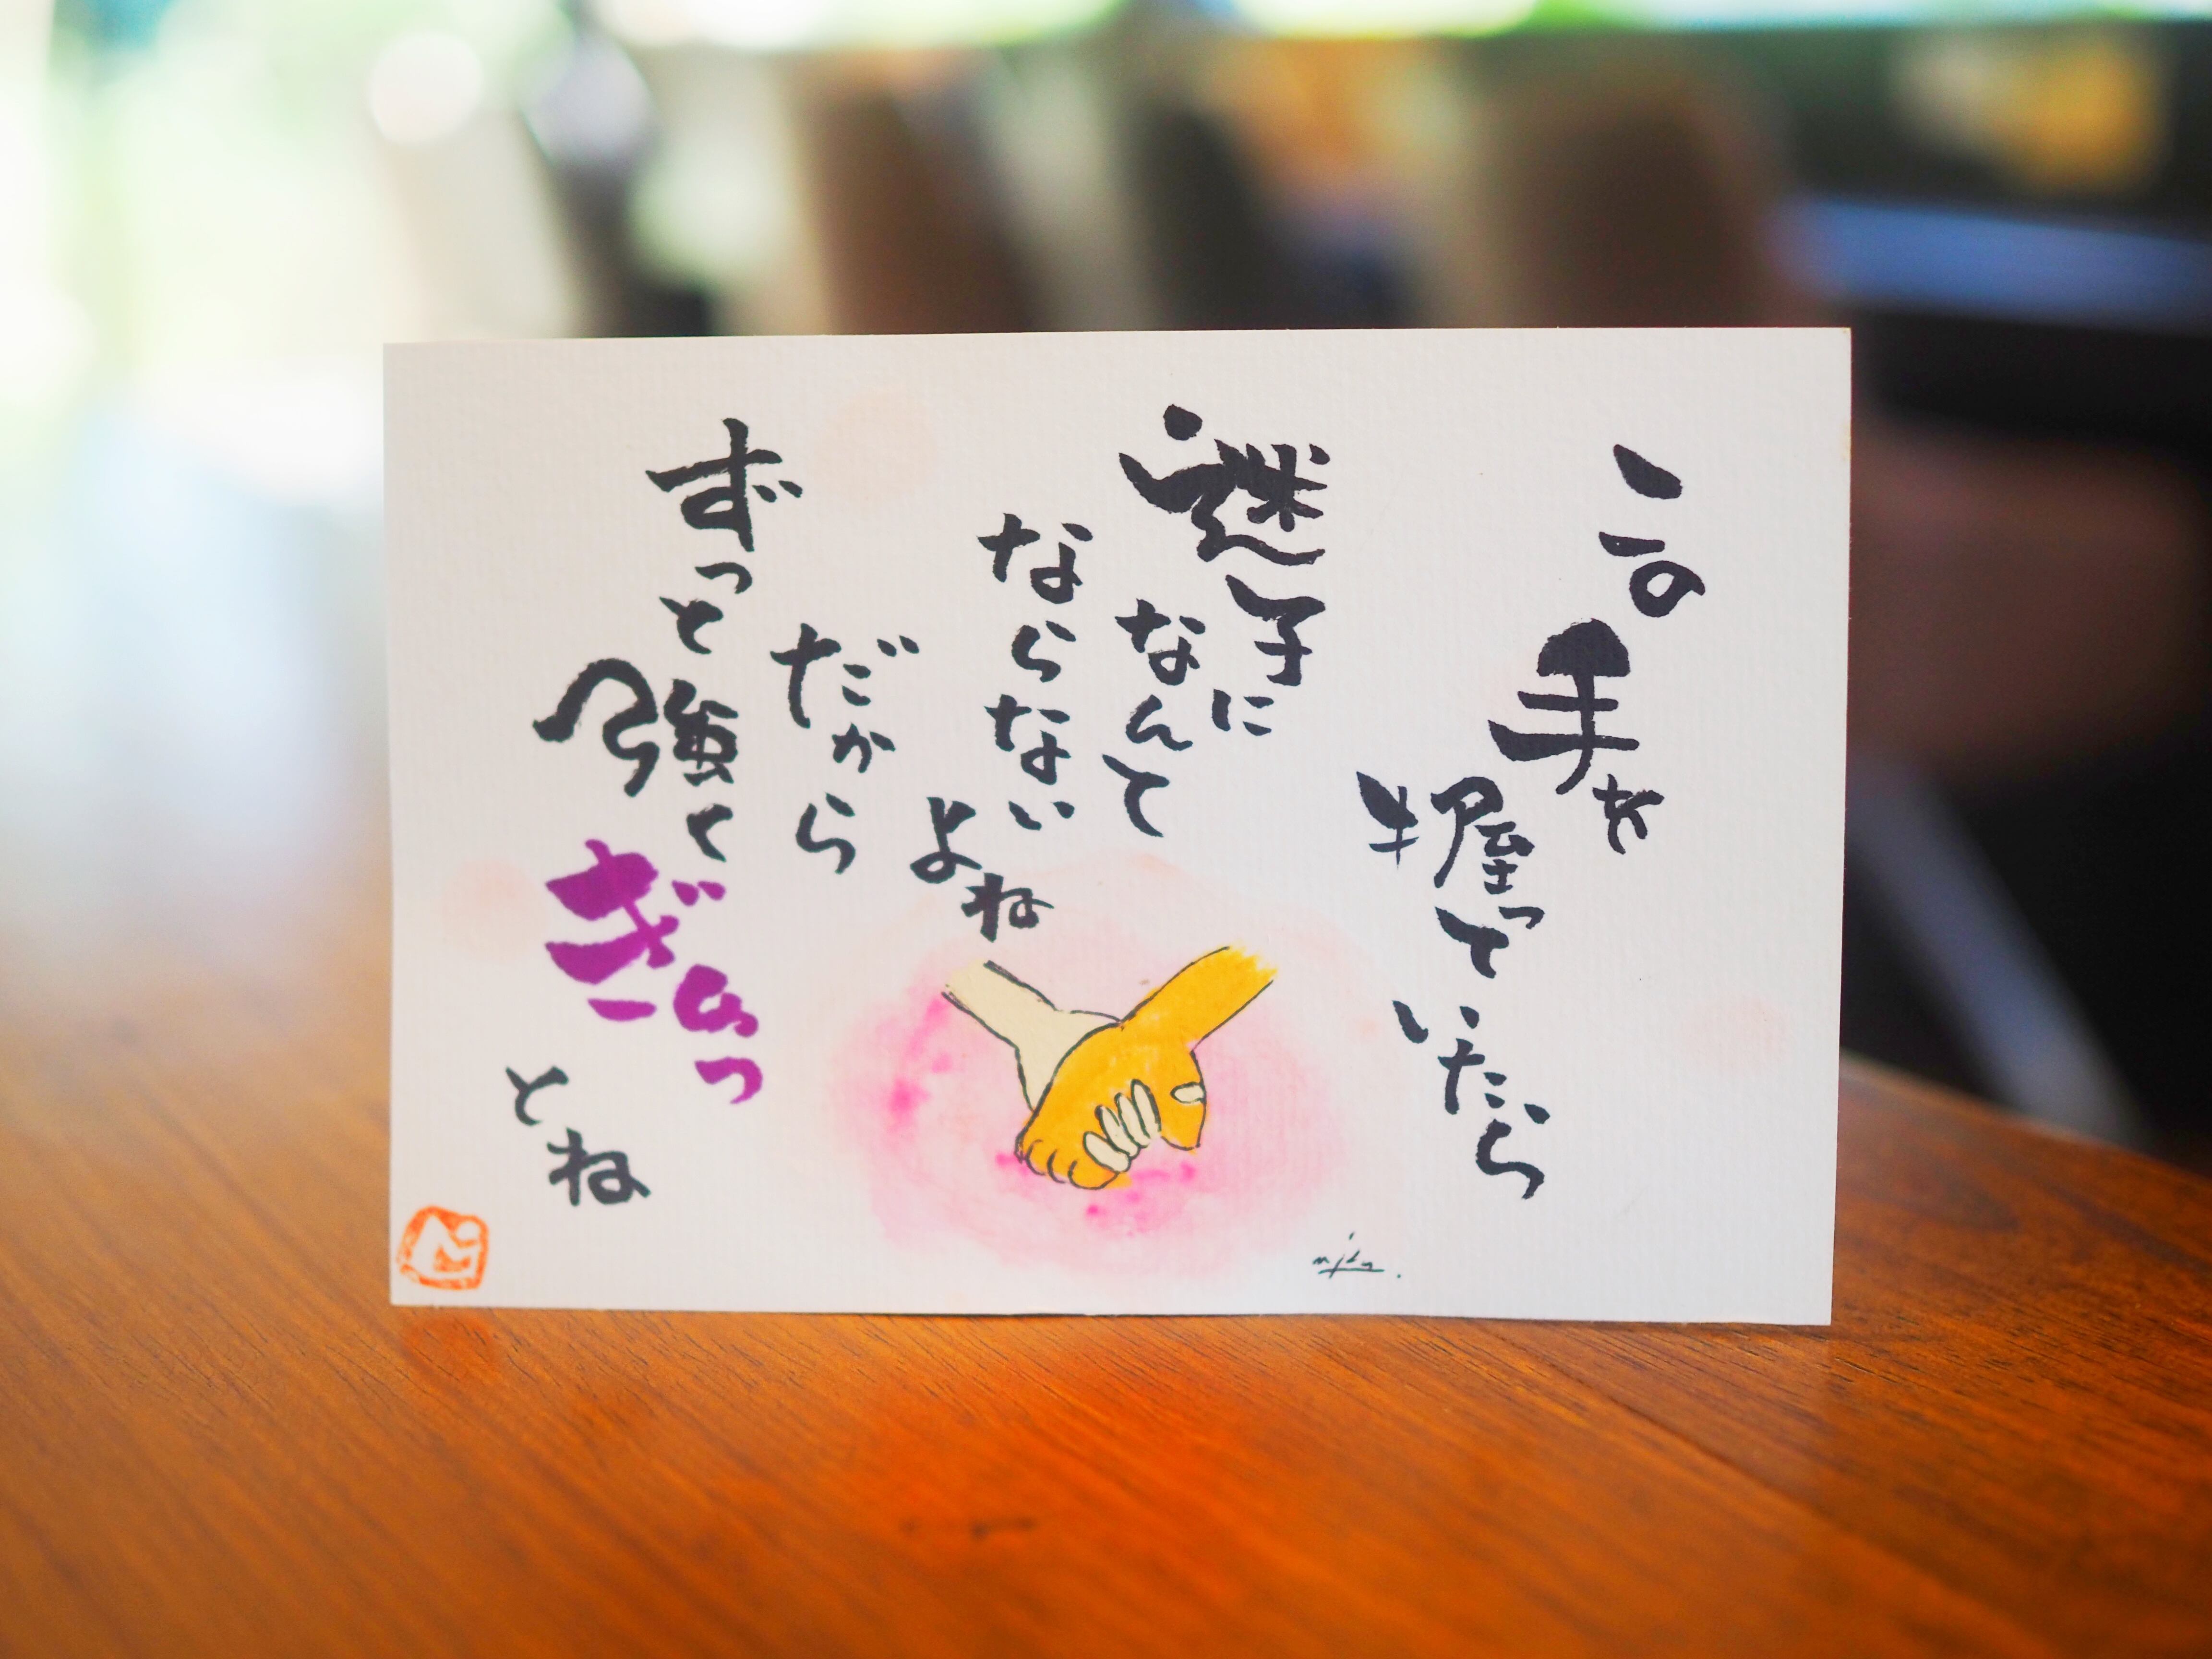 この手を
握っていたら
迷子に
なんて
ならない
よね
だから
ずっと強く
ぎゅっ
とね